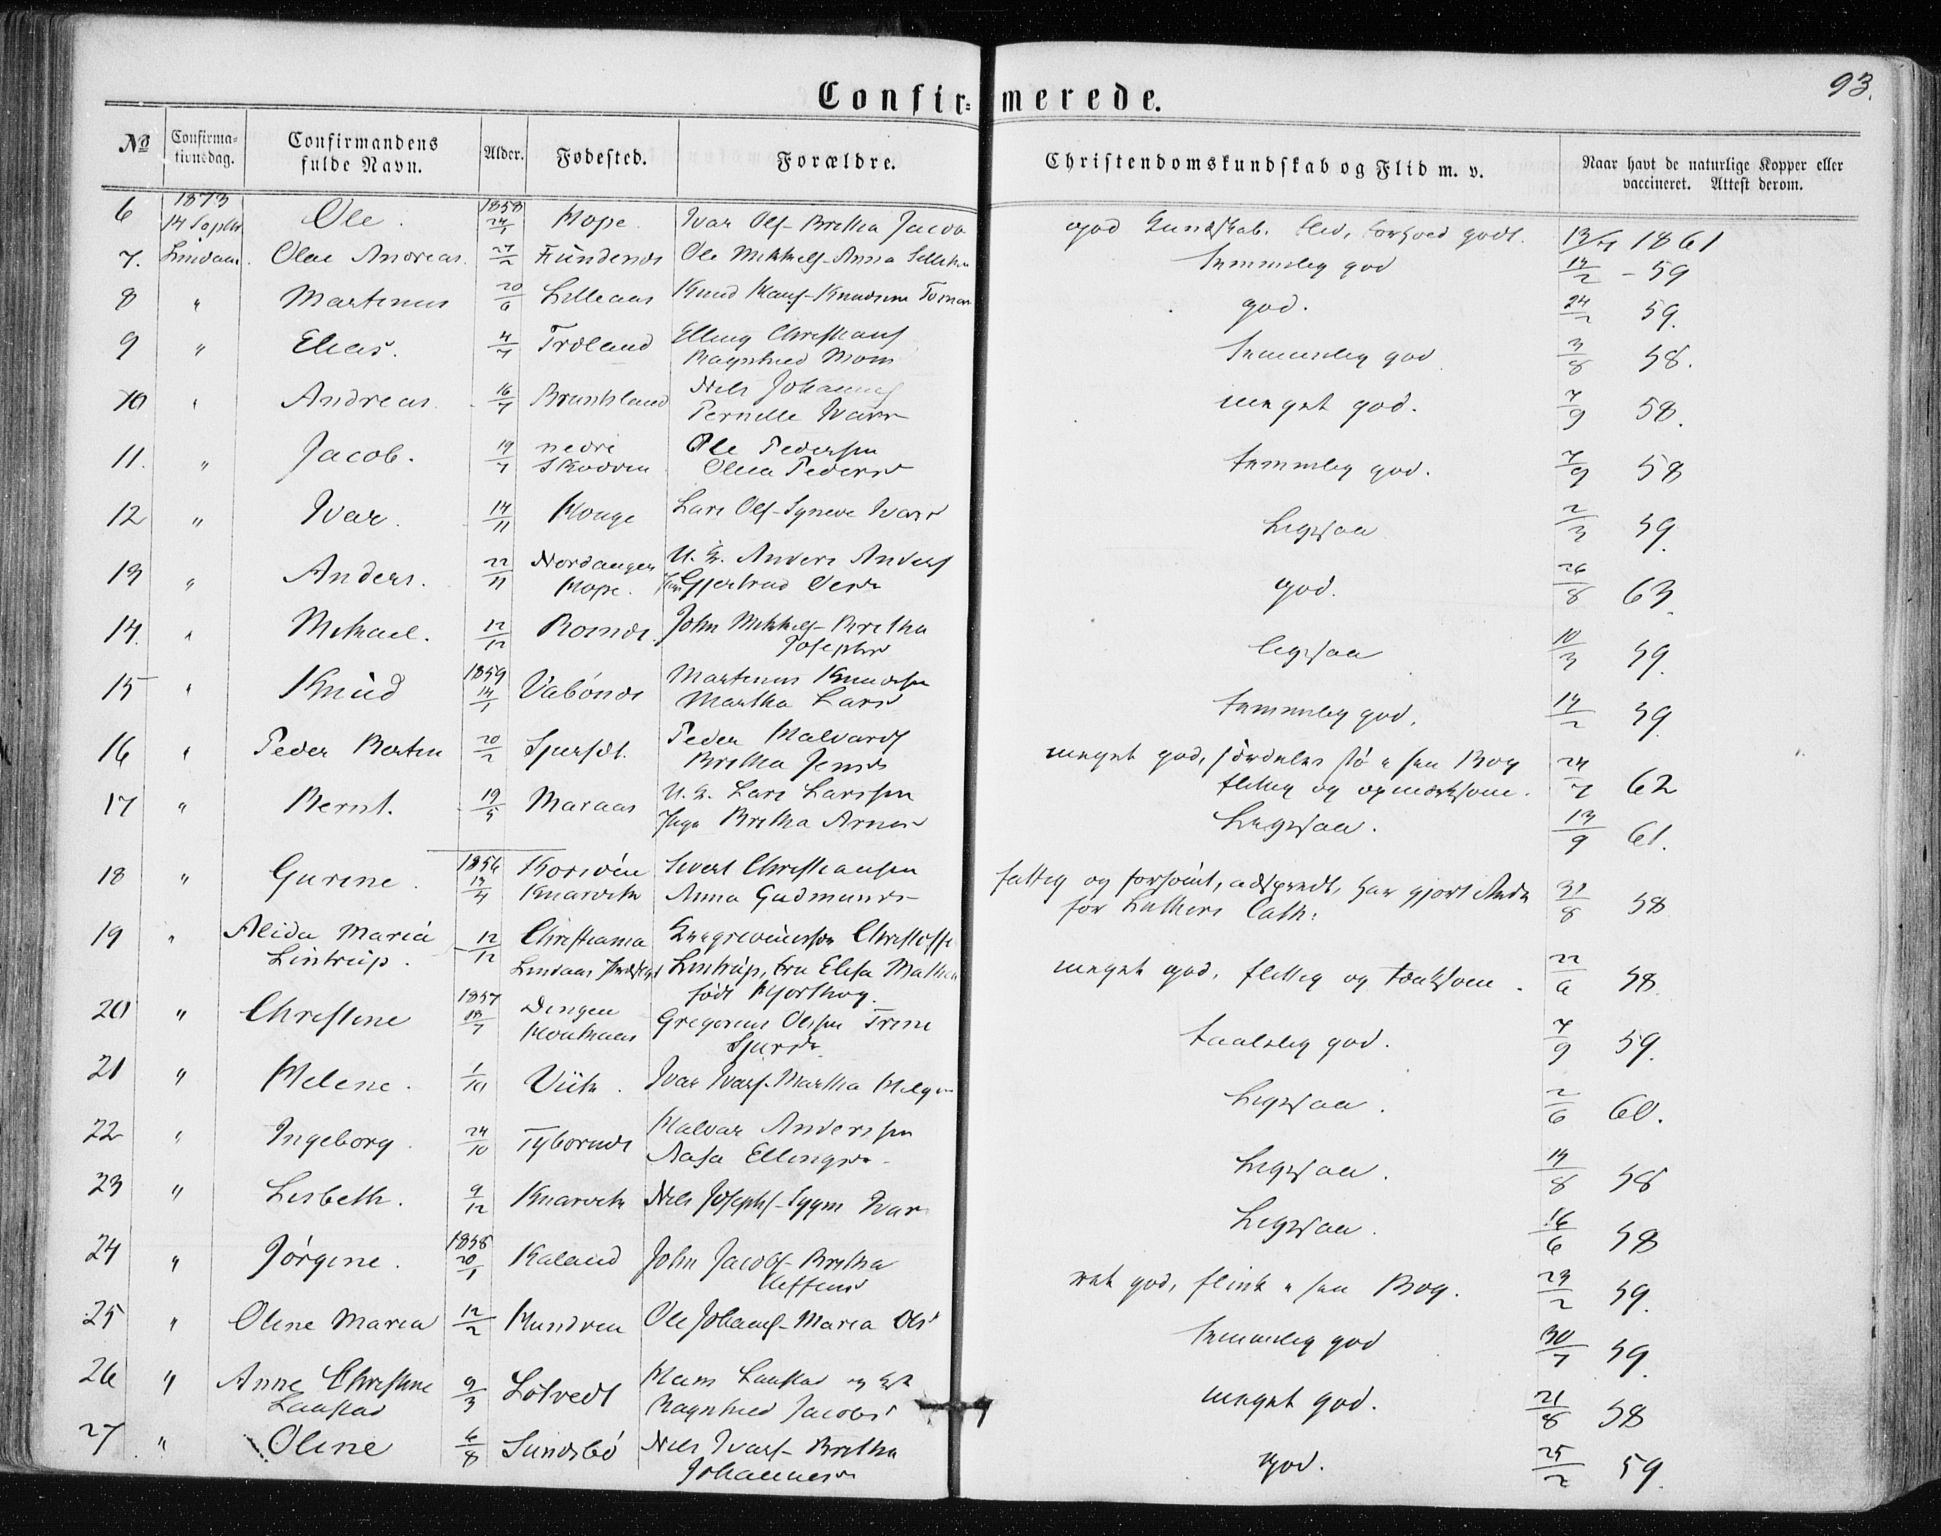 93.
Confirmerede.
№ Confirmationsdag. Confirmandens fulde Navn. Alder. Fødested. Forældre. Christendomskundskab og Flid m. v. Naar havt de naturlige Kopper eller vaccineret. Attest derom.
6 1873 14 Septbr Ole. 1858 24/1 Hope Ivar Ols- Brithe god Kundskab. Flid, forhold godt. 1861
7. Lindaas. Olai Andreas. 27/2 Fundenæs Ole Mikkels- Anna temmelig god 14/2 - 59
8 " Martinus 20/6 Lilleaas Knud Hans- god. 24/2 59.
9 " Elias. 4/7 Træland Elling Christians
Ragnhild temmelig god 3/8 58.
10 " Andreas 16/7 Bruntland Nils Johannes
Pernille Ivars meget god. 7/9 58.
11. " Jacob. 19/7 nedre Skodven Ole Pedersen
Olina Peders temmelig god. 7/9 58
12 " Ivar. 14/11 Houge Lars Ols- Synneve Ivars Ligesaa 2/3 59.
13 " Anders. 22/11 Nordanger
Hope. U. K. Anders Anders
Gjertrud god. 26/8 63.
14. " Mikael. 12/12 Romær. John Mikkels- Britha
Josephs ligesaa 10/3 59.
15 " Knud 1859 14/1 Vabønæs Martinus Knudsen
Martha Lars temmelig god. 14/2 59.
16 " Peder Bertin 20/2 Spurset. Peder Halvars
Britha Jens meget god, særdeles stø i sin Bog
flittig og opmærksom. 24/7 62
17 " Bernt. 19/5 Maraas U. K. Lars Larssen
Pige Britha Arnes Ligesaa. 13/9 61.
18 " Gurine. 1856 13/4 Korsøen
Knarvik Sivert Christiansen
Anna Gudmunds fattig og forsømt, adspredt, har gjort Rede
for Luthers Cath: 31/8 58
19 " Alida Maria
Lintrup. 12/12 Christiania
Lindaas Præstegd Christoffer
Lintrup, fru Elisa
født Hjorthøy. meget god, flittig og tænksom. 22/6 58.
20 " Christine 1857 18/7 Dingen
Gregorius Olssen Trine
Sjurs taalelig god. 7/9 59.
21 " Helene. 1/10 Viik. Ivar Ivars- Martha Helge Ligesaa. 2/6 60.
22 " Ingeborg. 24/10 Tybornæs Halvar Anderssen
Aasa Ellings Ligesaa. 14/8 58
23 " Lisbeth. 9/12 Knarvik Nils Josephs- Ivars Ligesaa. 16/6 58
24 " Jørgine. 1858 20/1 Kaland John Jacobs- Britha
ret god, flink i sin Bog. 23/2 59.
25 " Oline Maria 12/2 Hundven Ole Johans- Maria Ols temmelig god 30/7 59.
26 " Anne Christine
Laastad 9/3 Løtvedt Hans Laastad og
Ragnhild Jacobs meget god. 21/8 58
27 " Oline 6/8 Sundsbø Nils Ivars- Britha
Johannes god. 25/2 59.